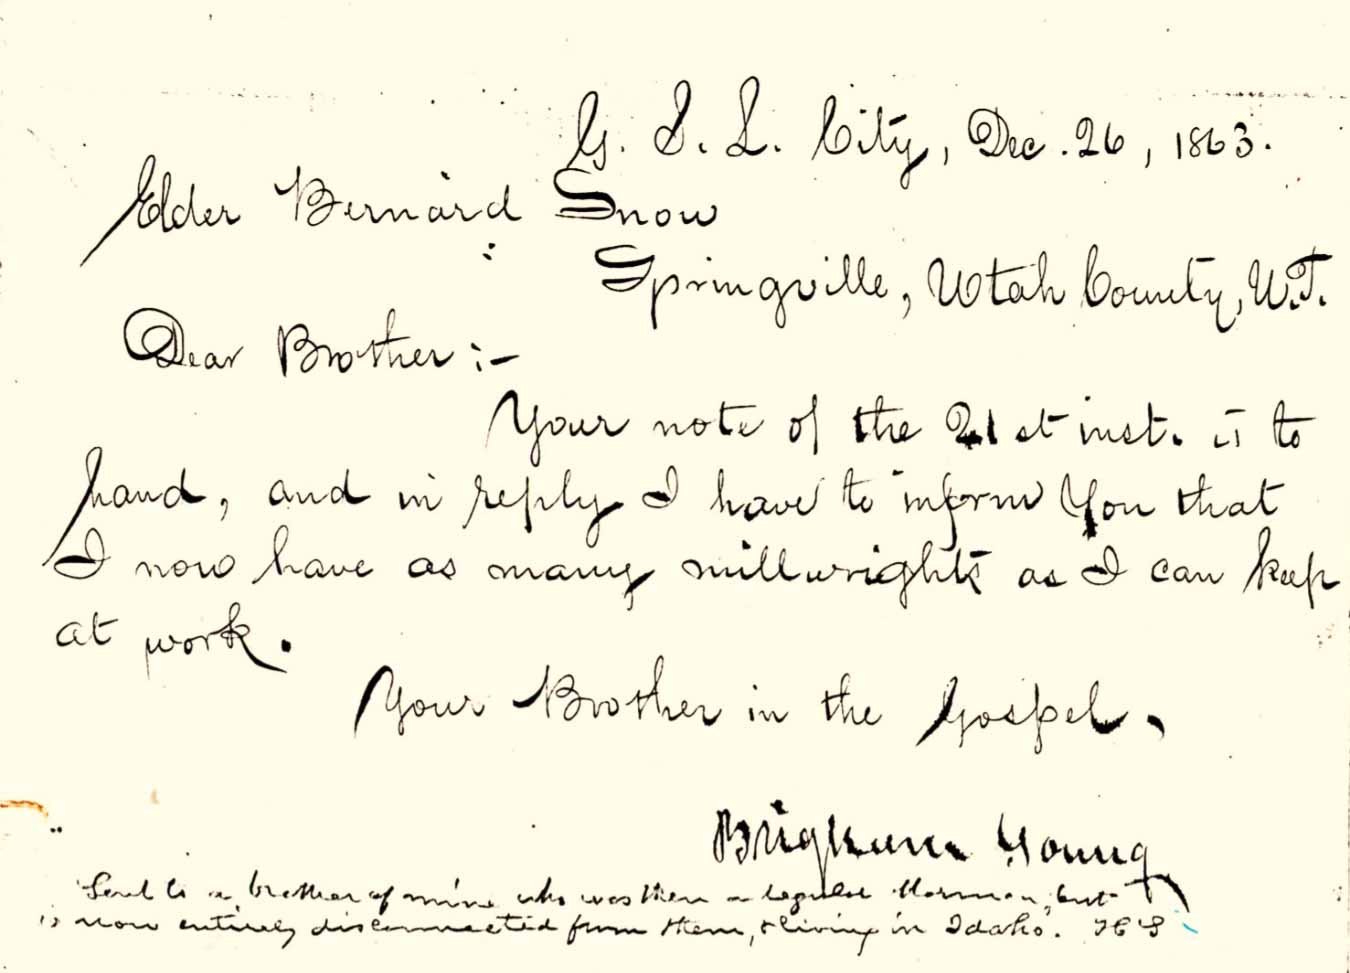 G. S. L. City, Dec. 26, 1863.
Elder Bernard Snow
Springville, Utah County, U.T.
Dear Brother :-
Your note of the 21st inst. is to
hand, and in reply I have to inform you that
I now have as many millwrights as I can keep
at work.
Your Brother in the Gospel,
Brigham Young
Sent to a brother of mine who was then a regular Mormon, but
is now entirely disconnected from them, & living in Idaho.